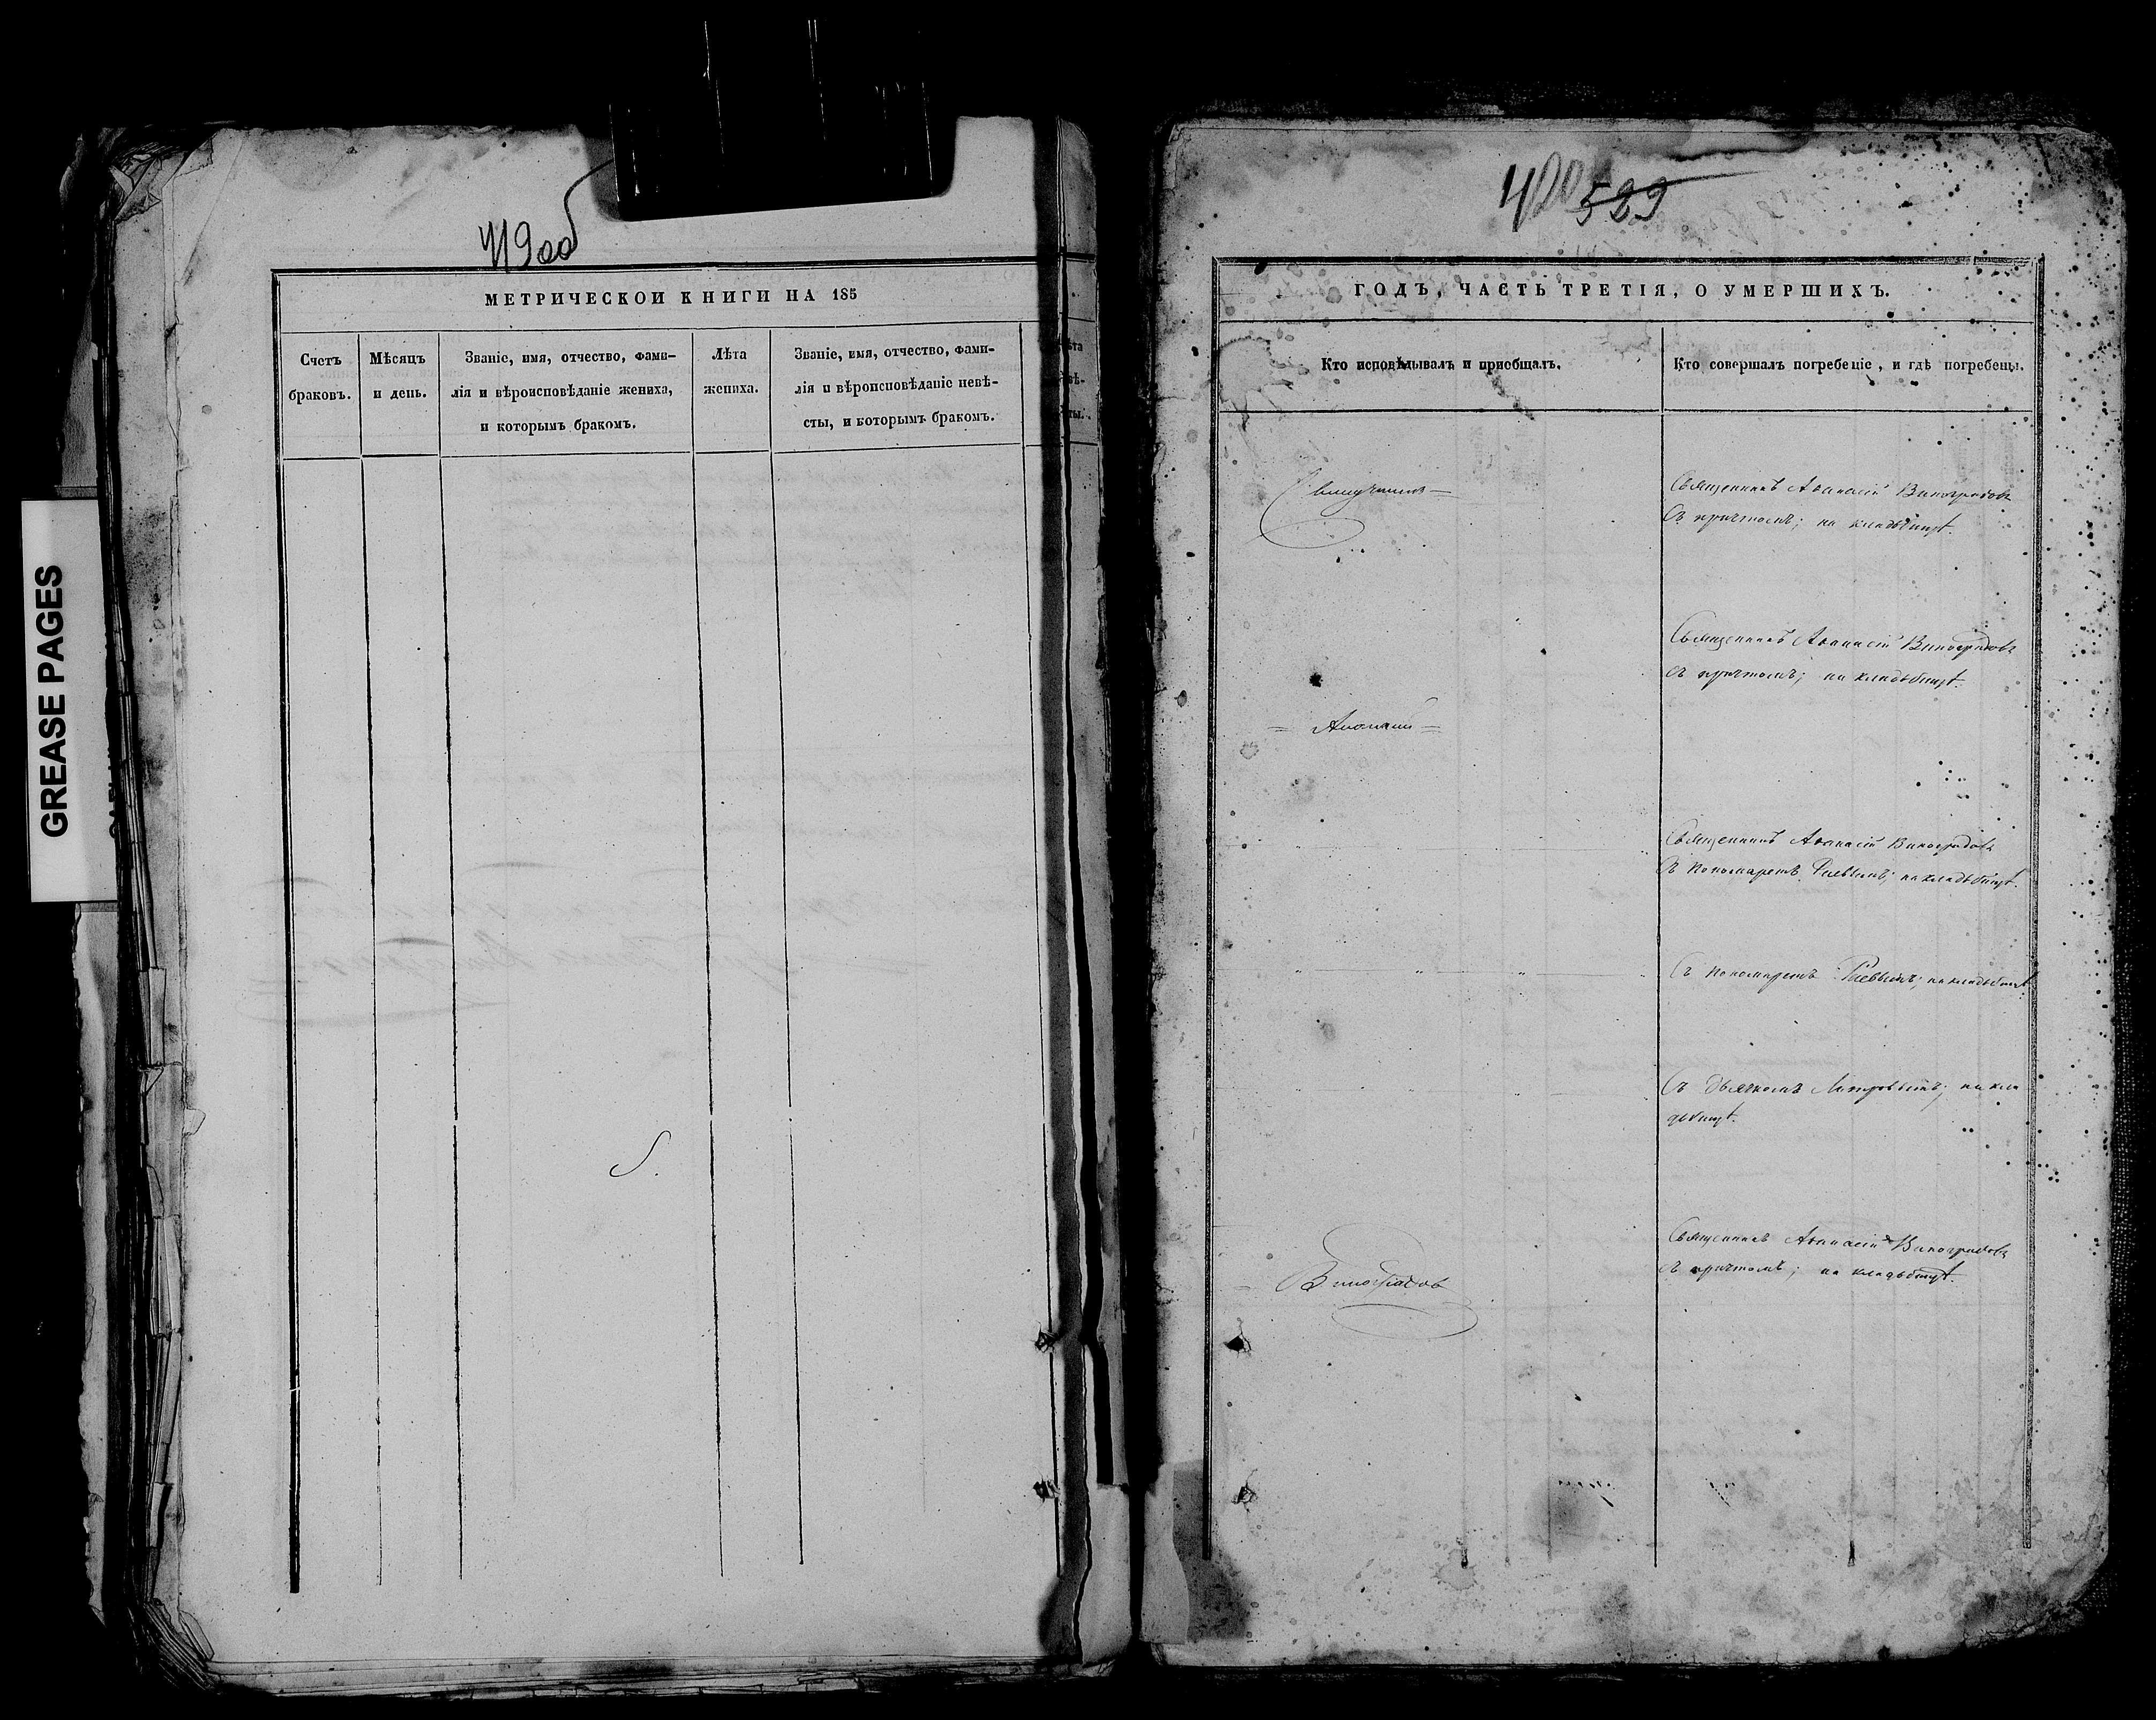 GREASE PAGES
419об
МЕТРИЧЕСКОЙ КНИГИ НА 185
Счетъ
браковъ.
Мѣсяцъ
и день.
Званіе, имя, отчество, фами-
лія и вѣроисповѣданіе жениха,
и которымъ бракомъ.
Лѣта
жениха.
Званіе, имя, отчество, фами-
лія и вѣроисповѣданіе невѣ-
сты, и которымъ бракомъ.
420 599
ГОДЪ, ЧАСТЬ ТРЕТІЯ, О УМЕРШИХЪ.
Кто исповѣдывалъ и пріобщалъ.
Кто совершалъ погребеніе, и гдѣ погребены.
Священникъ Аѳанасій Виноградовъ
съ причтомъ; на кладбищѣ.
Священникъ Аѳанасій Виноградовъ
съ причтомъ; на кладбищѣ.
Аѳанасій
Священникъ Аѳанасій Виноградовъ
съ пономаремъ на кладбищѣ.
съ пономаремъ на кладбищѣ
съ дьячкомъ на кла
дбищѣ.
Священникъ Аѳанасій Виноградовъ
съ причтомъ; на кладбищѣ.
Виноградов